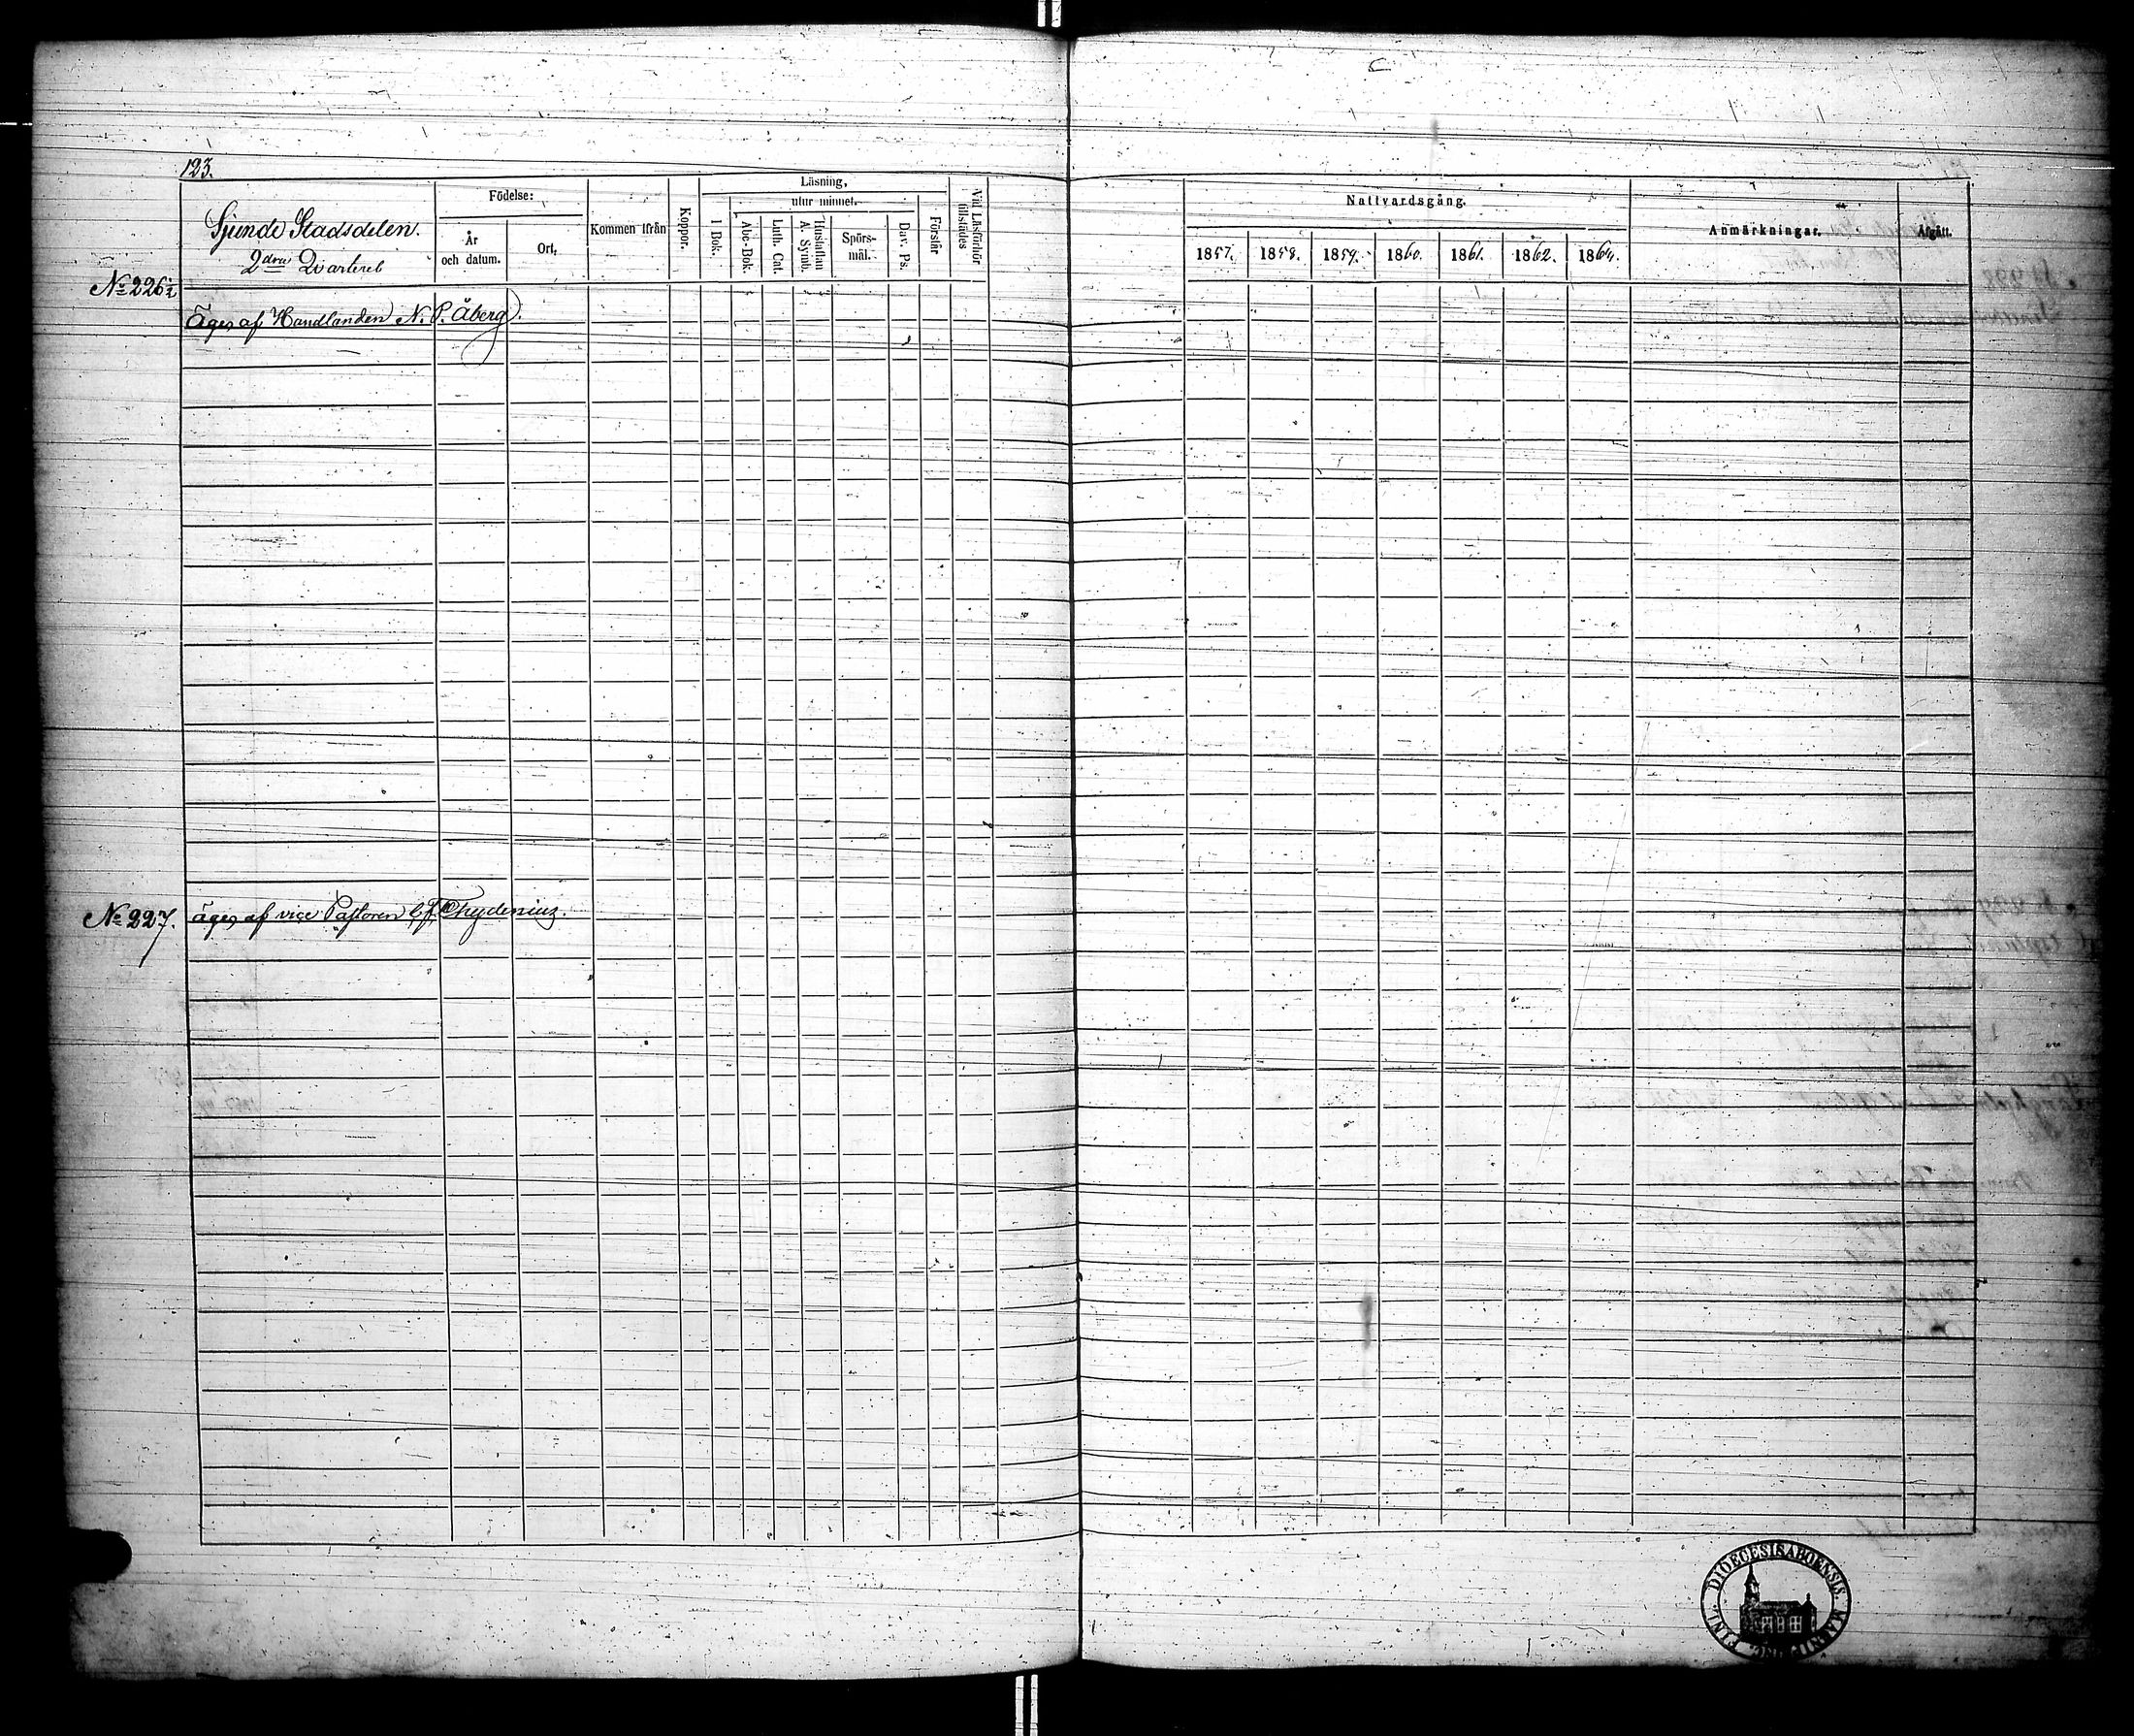 123.
Sjunde Stadsdelen.
2dra Qvarteret
Födelse:
År
och datum.
Ort.
Kommen ifrån
Koppor.
Läsning,
utur minnet.
I Bok.
Abc-Bok.
Luth. Cat.
Hustaflan
A. Symb.
Spörs-
mål.
Dav. Ps.
Förstår
Vid Läsförhör
tillstädes
Nattvardsgång.
1857.
1858.
1859.
1860.
1861.
1862.
1864.
Anmärkningar.
Afgått.
No 226½
Äges af Handlanden N. P. Åberg.
No 227.
äges af vice Pastoren Chydenius.
FINL. DIOECESIS ABOENSIS